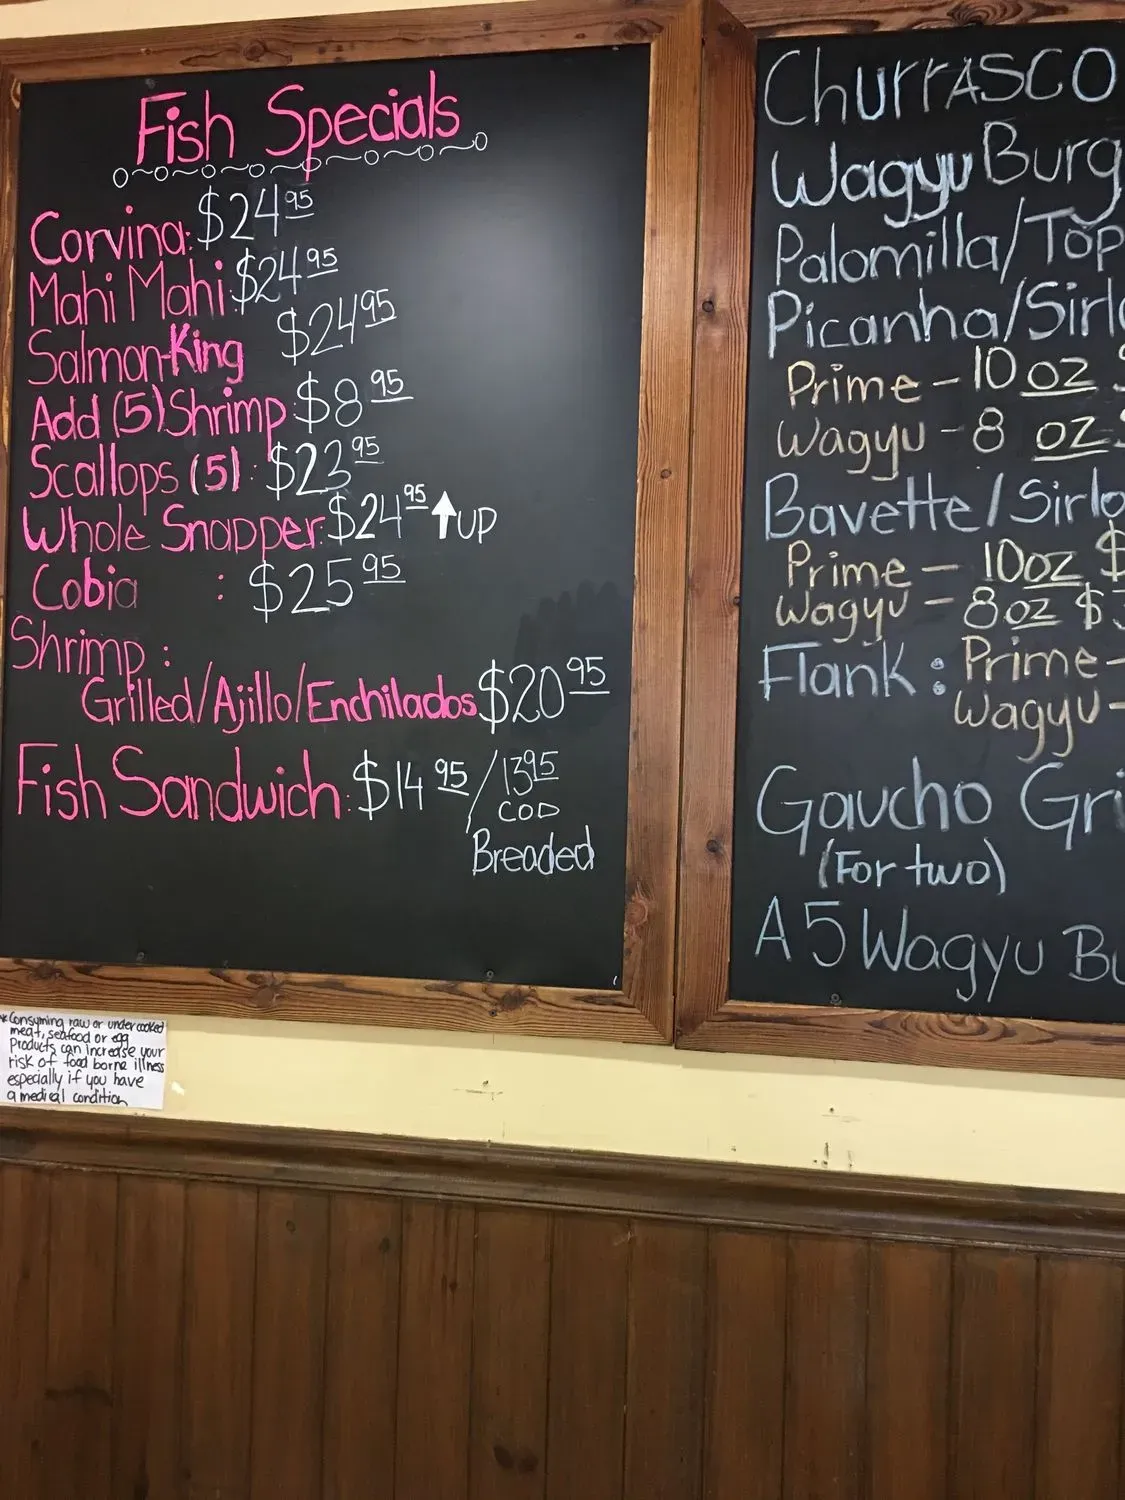 Fish Specials
Corvina: $24 95
Mahi Mahi: $24 95
Salmon-King $24 95
Add (5) Shrimp: $8 95
Scallops (5): $23 95
Whole Snapper: $24 95 ↑ UP
Cobia : $25 95
Shrimp :
Grilled/Ajillo/Enchilados $20 95
Fish Sandwich: $14 95 / 13 95
COD
Breaded
*Consuming raw or under cooked
meat, seafood or egg
Products can increase your
risk of food borne illness
especially if you have
a medical condition
Churrasco
Wagyu Burg
Palomilla/Top
Picanha/Sirlo
Prime - 10 oz $
Wagyu - 8 oz $
Bavette/Sirlo
Prime - 10oz $
Wagyu - 8oz $3
Flank : Prime -
Wagyu -
Gaucho Gri
(For two)
A5 Wagyu Bu